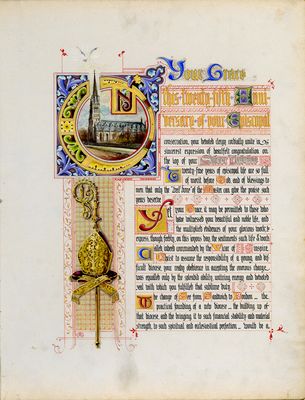 Your Grace
On this twenty-fifth Anni-
versary of your Episcopal
consecration, your beloved clergy cordially unite in
sincerest expression of heartfelt congratulation on
the joy of your Silver Jubilee
Twenty-five years of episcopal life are so full
of merit before God and of blessings to
men that only the "Well done" of the Master can give the praise such
years deserve
Yet, your Grace, it may be permitted to those who
have witnessed your beautiful and noble life, and
the multiplied evidences of your glorious works to
express, though feebly, on this joyous day, the sentiments such life & works
when commanded by the Vicar of
Christ to assume the responsibility of a young, and dif-
ficult diocese, your ready obedience in accepting the onerous charge,
was equalled only by the splendid ability, untiring energy and
zeal with which you fulfilled that sublime duty
The change of See from Sandwich to London — the
practical founding of a new diocese — the building up of
that diocese, and the bringing it to such financial stability and material
strength, to such spiritual and ecclesiastical perfection, — would be a